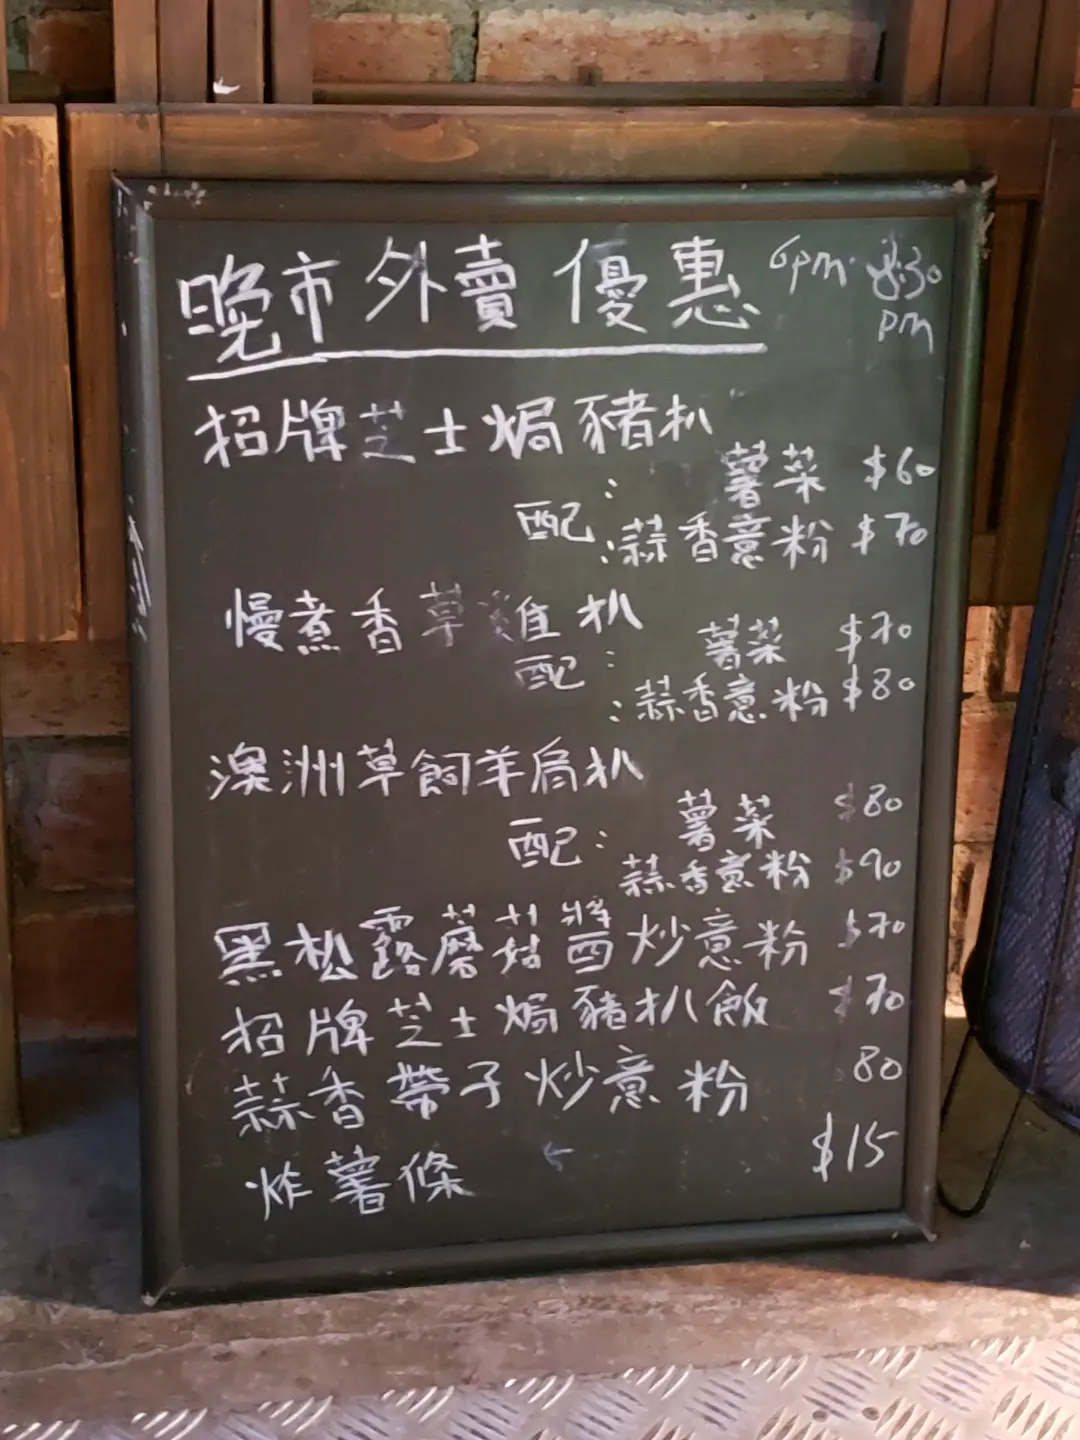 晚市外賣優惠 6pm 8:30 pm
招牌芝士焗豬扒
: 薯菜 $60
配 : 蒜香意粉 $70
慢煮香草雞扒
配 : 薯菜 $70
: 蒜香意粉 $80
澳洲草飼羊肩扒
配 : 薯菜 $80
蒜香意粉 $90
黑松露蘑菇醬炒意粉 $70
招牌芝士焗豬扒飯 $70
蒜香帶子炒意粉 80
炸薯條 $15